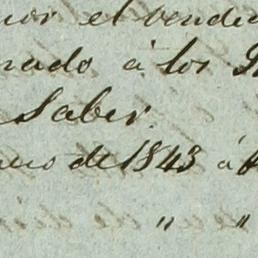 por el vendi
nado á los
Saber.
de 1843 á
" "